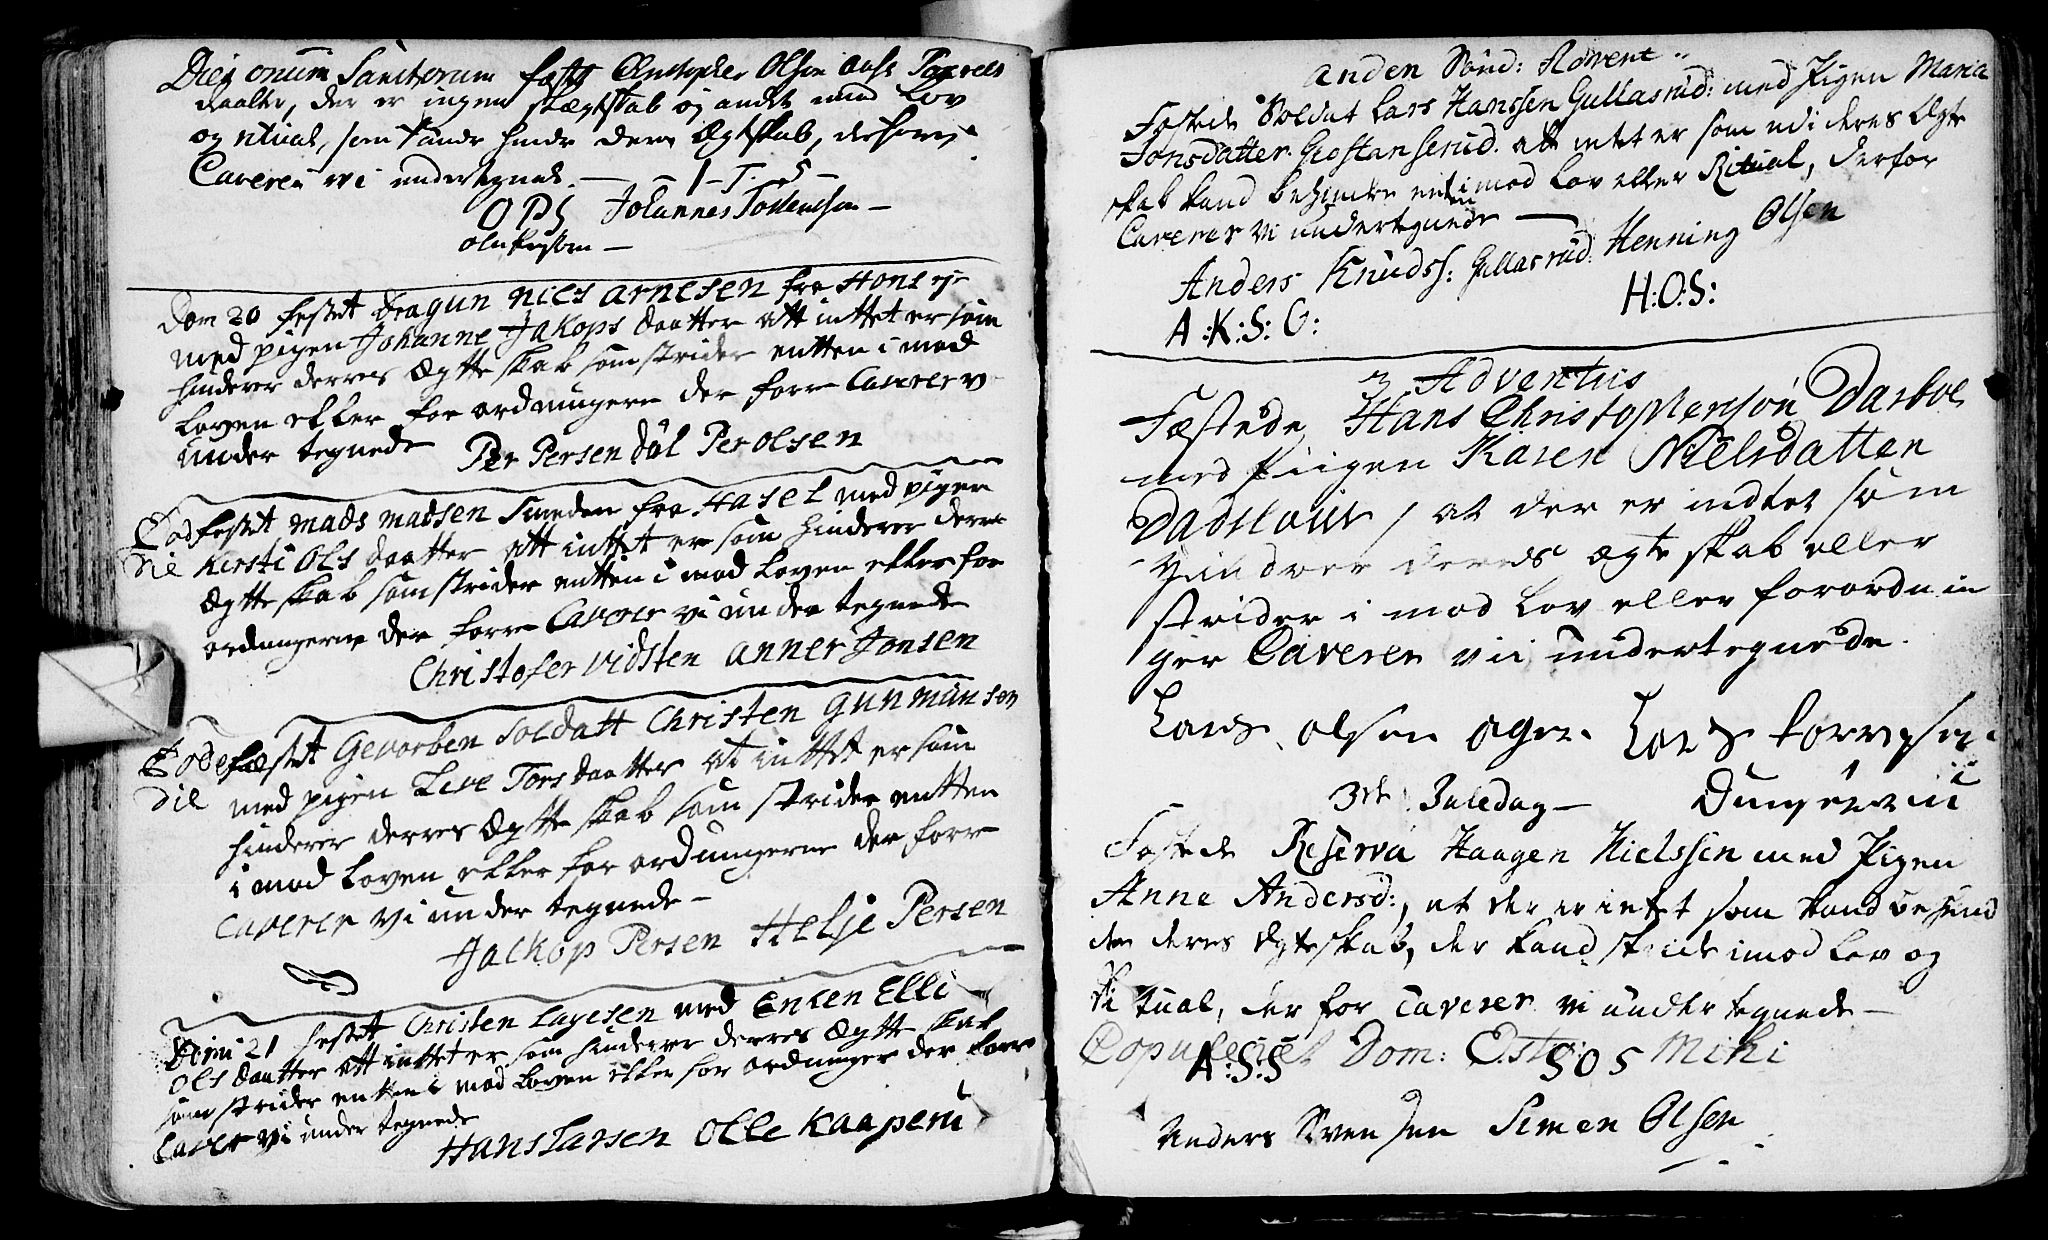 Die omnium Sanctorum fæste Christopher Olsen
daatter, der er ingen Slægtskab og andet mod Lov
og ritual, som kunde hindre dere Ægteskab, derfore
Caverer vi undertegnede. — I–T–S–
OPS Johannes Tostensen —
Ole Persen —
Dom 20 festet Dragun Niels Arnesen fra Hons ej-
med pigen Johanne Jakops daatter att inttet er som
hinderer derres Ægtte skab som strider entten i mod
Loven eller for ordningerne der forre Caverer v
under tegnede Per Persen Døl Per Olsen
Eod festet Mads Madsen Smeden fra Hasel med pigen
die Kersti Ols daatter att inttet er som hinderer derres
Ægtte skab som strider entten i mod Loven eller for
ordningerne der forre Caverer vi under tegnede
Christofer Vidsten Anner Jonsen
Eode fæstet Gevorben Soldatt Christen Gunmunsen
die med pigen Live Tors daatter att inttet er som
hinderer derres Ægtte skab som strider entten
i mod Loven eller for ordningerne der forre
Caverer vi under tegnede —
Jackop Persen Helje Persen
Domi 21 festet Christen Lagesen med Enken Elli
Ols daatter att inttet er som hinderer derres Ægtte skab
som strider entten i mod Loven eller for ordninger der forre
Caver vi under tegnede
Hans Larsen Olle Kaaperu
Anden Sønd: Advent
Festede Soldat Lars Hanssen Gullasrud: med Pigen Maria
Jonsdatter att intet er som udi deres Ægte
skab kand behindre enten imod Lov eller Ritual, derfor
Caverer vi undertegnede —
Anders Knudss: Gullasrud: Henning Olsen
A:K:S:G: H:O:S:
3 Adventus
Fæstede Hans Christophersøn Darboe
med Piigen Karen Nielsdatter
at der er indtet som
hindrer deres ægteskab eller
strider i mod Lov eller forordnin
ger Caverer vii undertegnede.
Lars olsen ager. Lars
3die Juledag —
Festede Reserva Haagen Nielssen med Pigen
Anne Andersd:, at der er intet som kand behind
re deres Ægteskab, der kand stride imod Lov og
Ritual, der for Caverer vi undertegnede —
Copuleret Dom: Esto Mihi
A:S:S SOS
Anders Svensen Simen Olsen